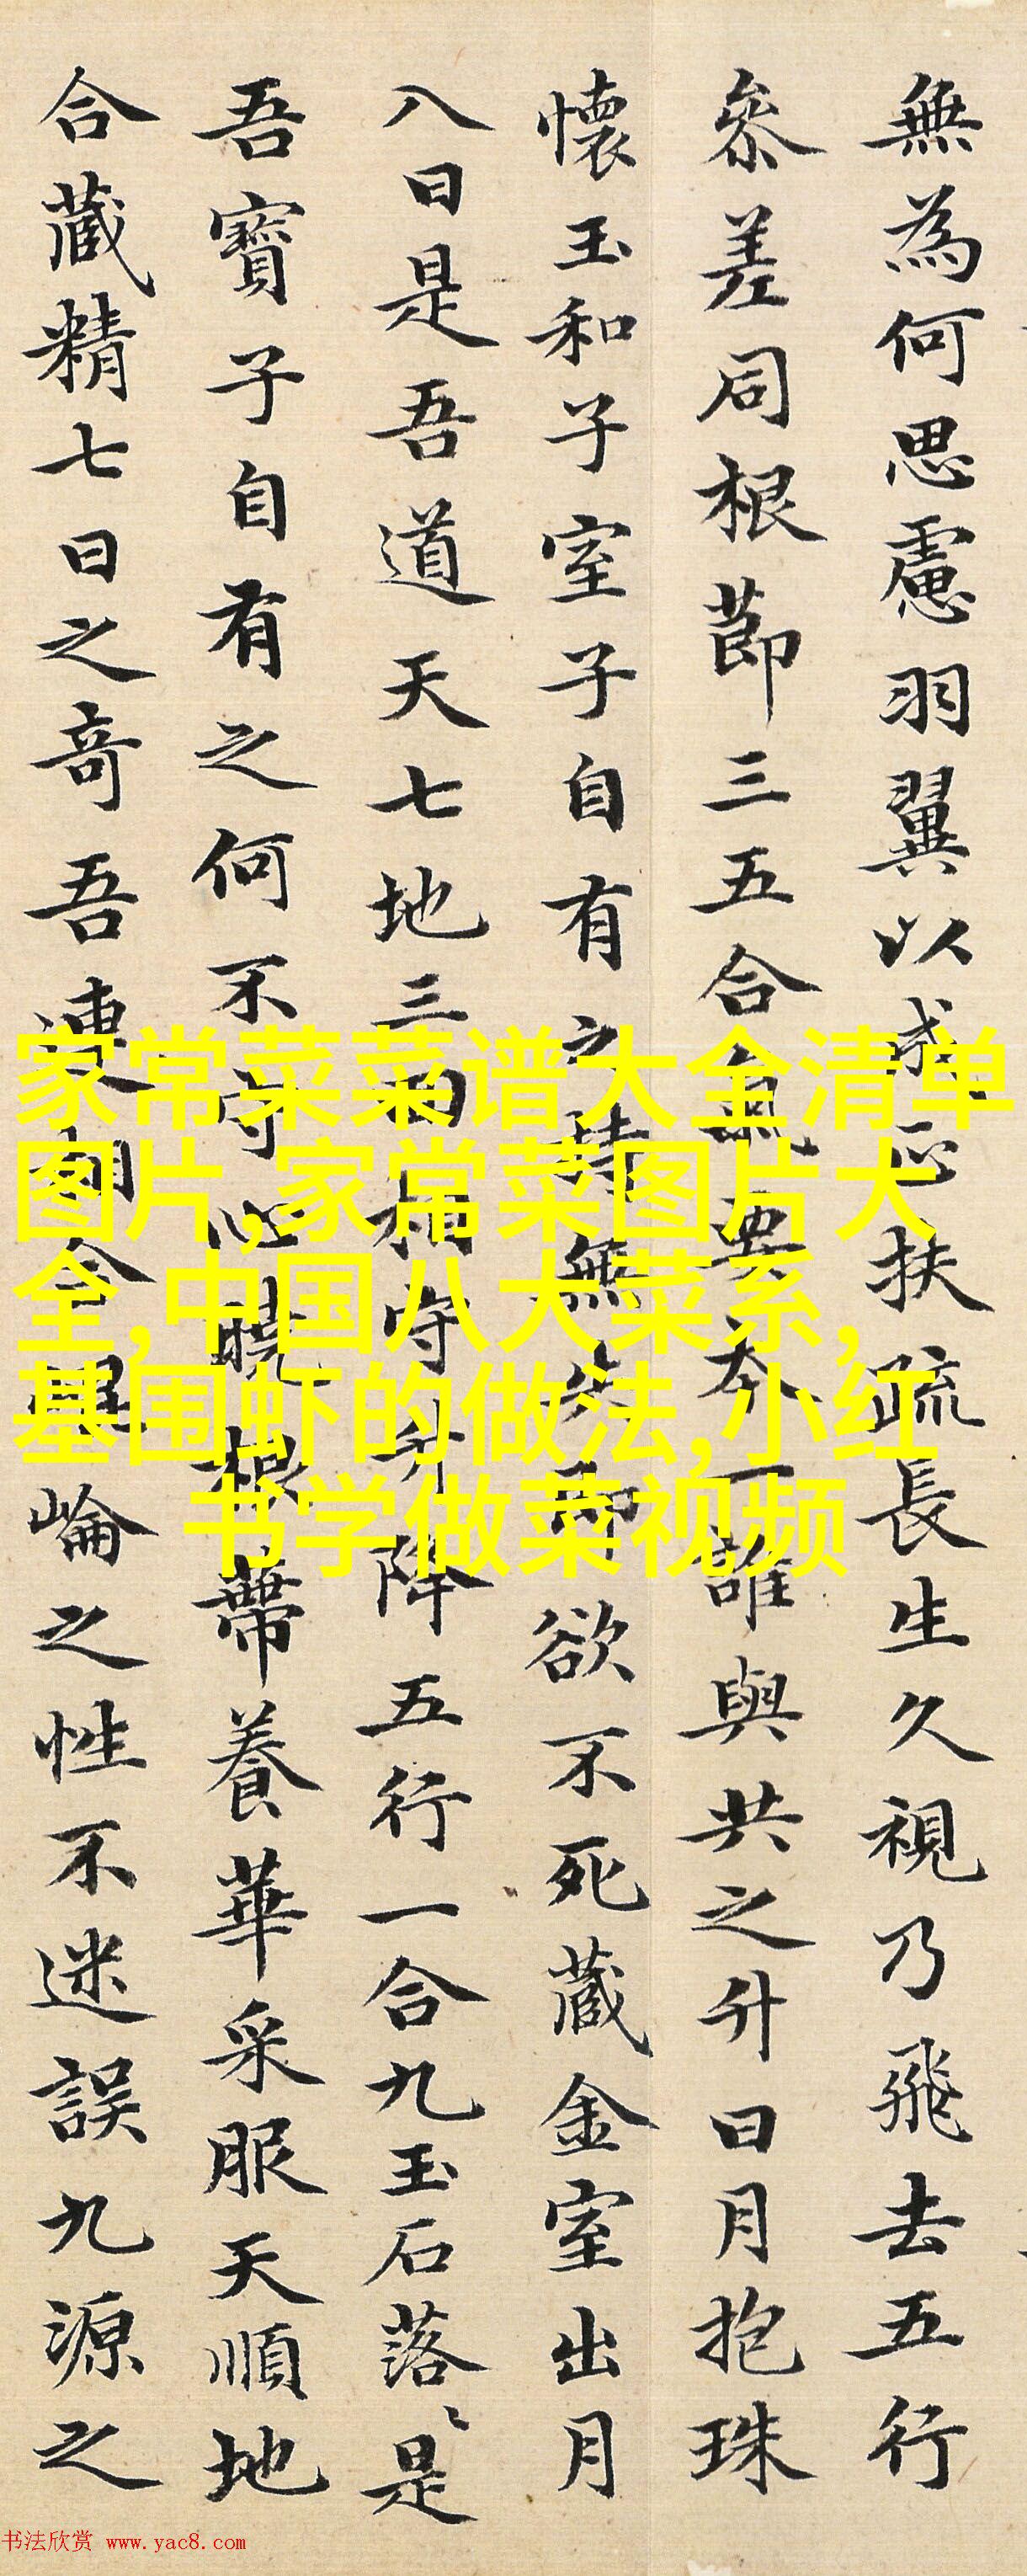 無為何思慮羽翼以成正扶疏長生久視乃飛去五行
參差同根節三五合氣要本一誰與共之升日月抱珠
懷玉和子室子自有之持無失即欲不死藏金室出月
入日是吾道天七地三回相守升降五行一合九玉石落落是
吾寶子自有之何不守心曉根蔕養華采服天順地
合藏精七日之奇吾連相合崐崘之性不迷誤九源之
家常菜菜谱大全清单
图片,家常菜图片大
全,中国八大菜系,
基围虾的做法,小红
书学做菜视频
书法欣赏 www.yac8.com